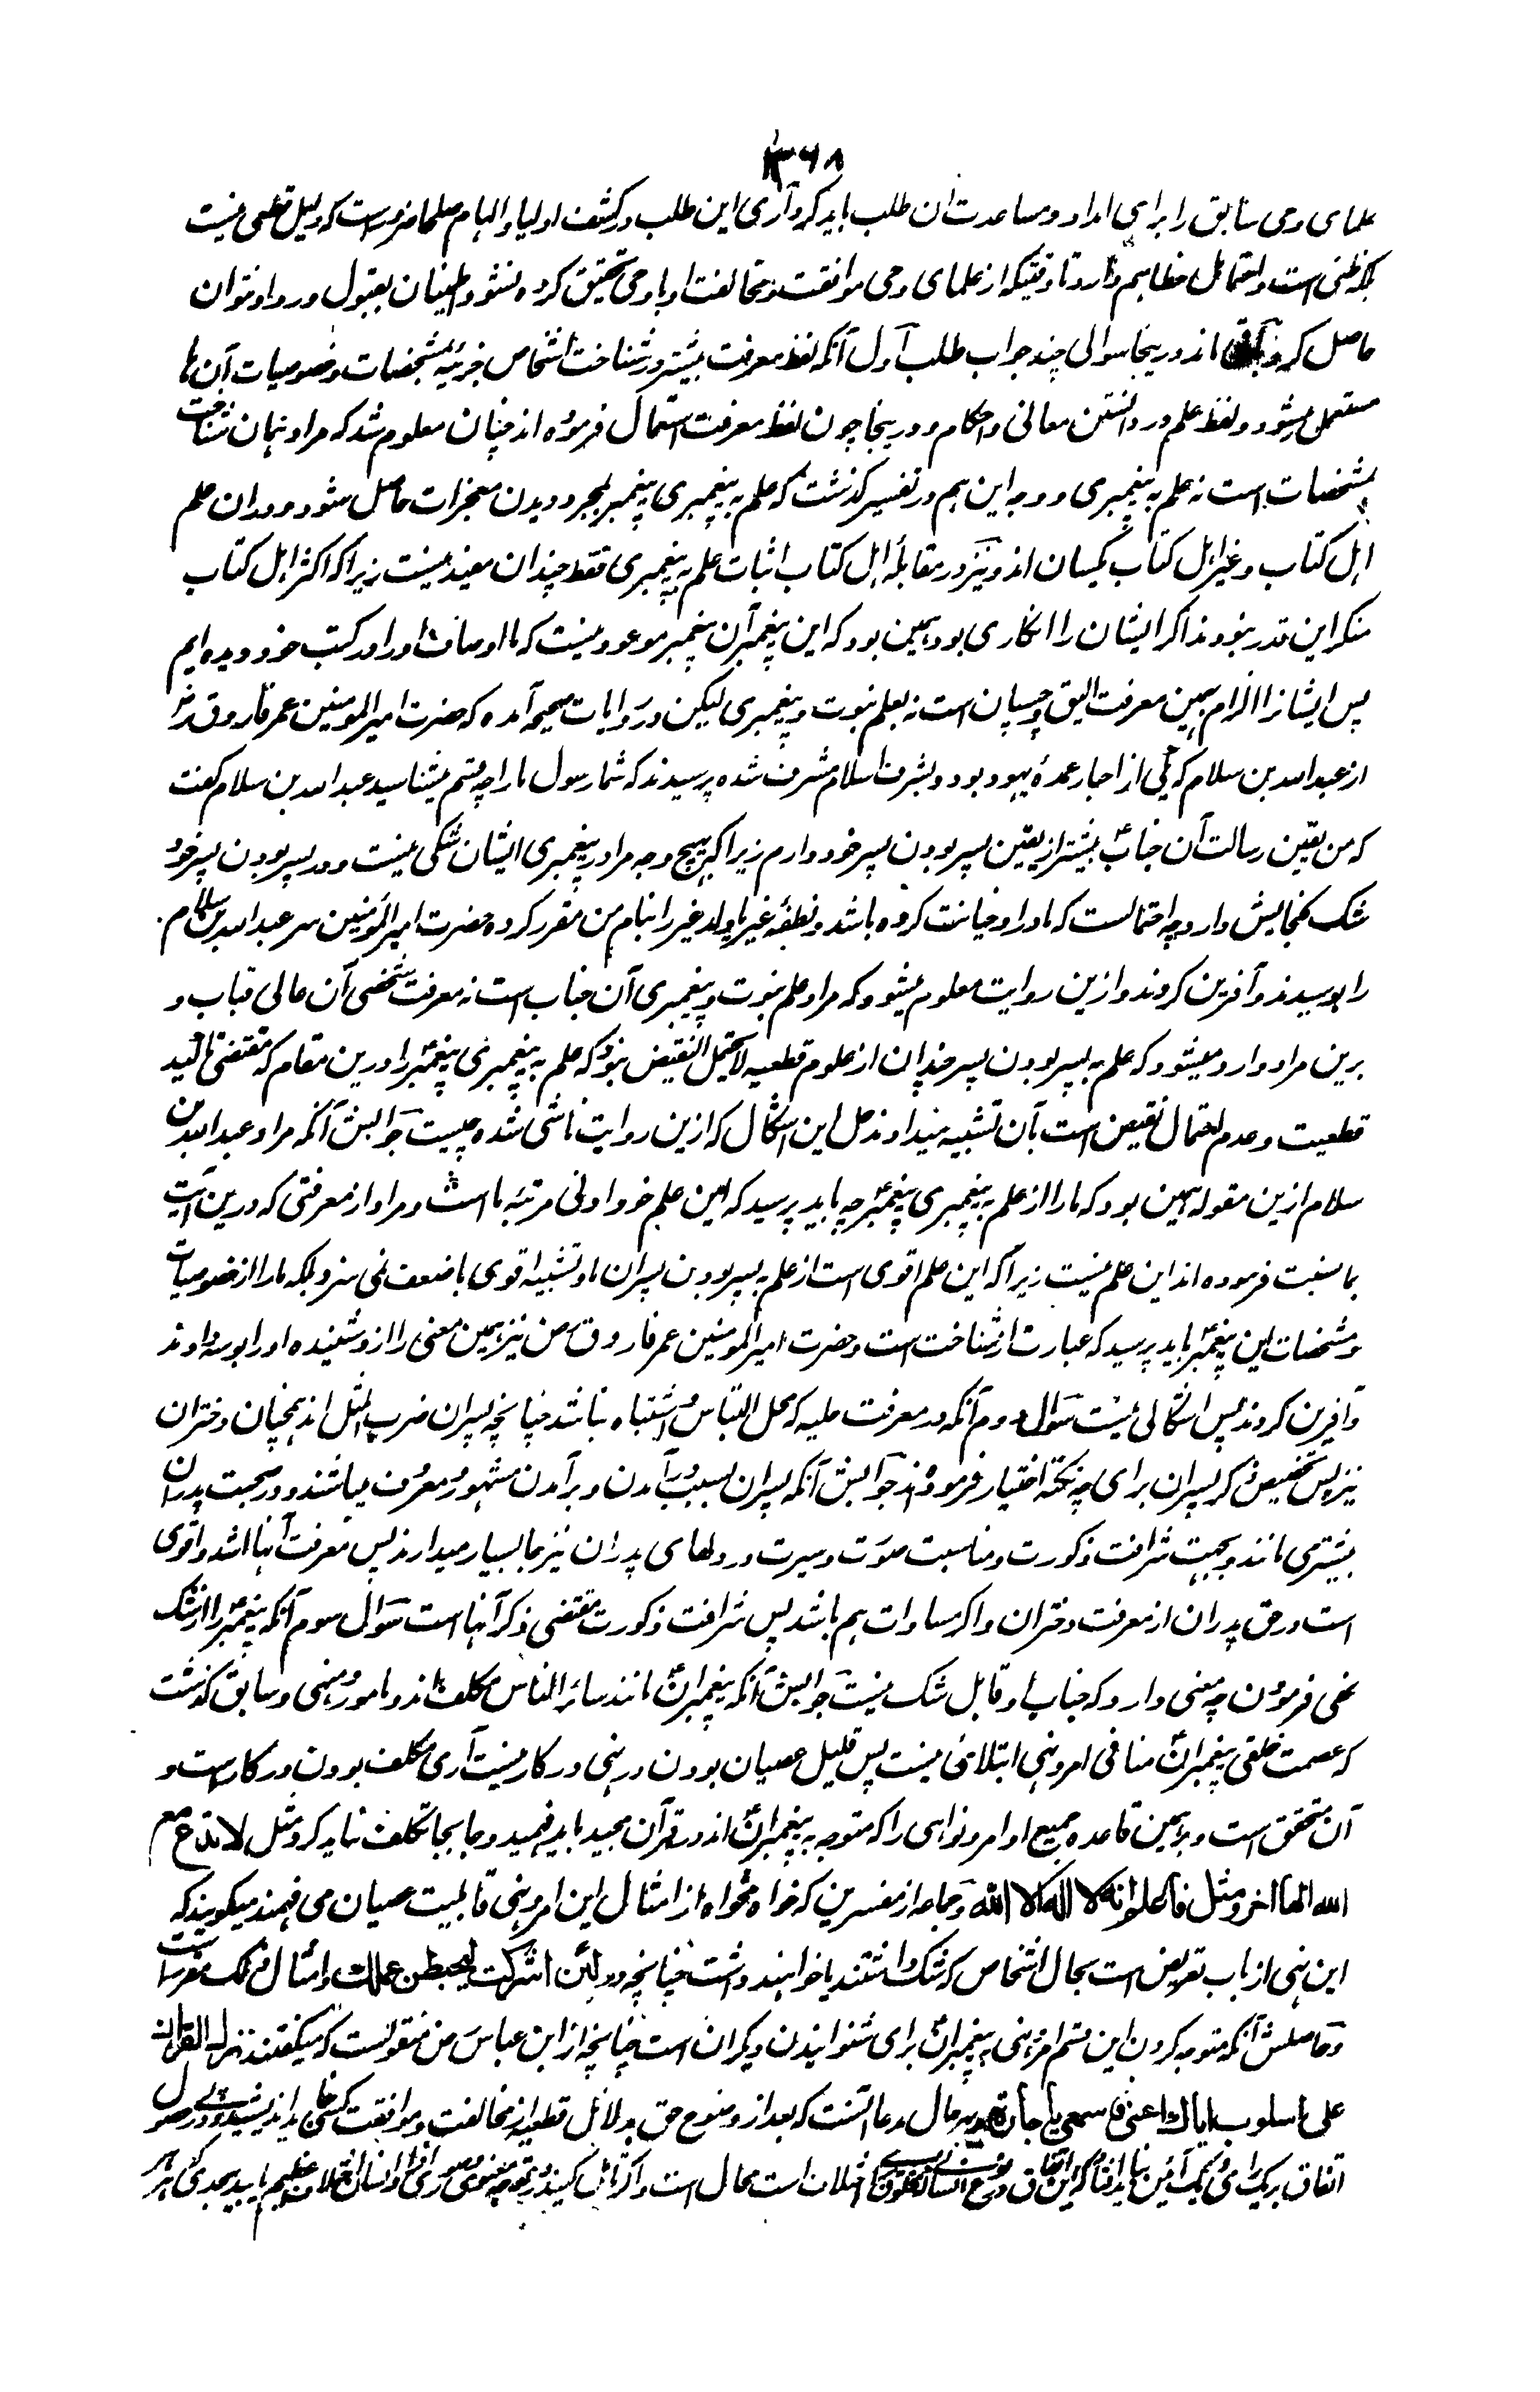 ۳۶۸
علمای وحی سابق را برای امداد و مساعدت ان طلب باید کرد آری این طلب در کشف اولیا و الهام صلحا ضرورست که دلیل قطعی نیست
بلکه ظنی است و احتمال خطا هم دارد تا وقتیکه از علمای وحی موافقت و مخالفت او با وحی تحقیق کرده نشود اطمینان بقبول و رد او نتوان
حاصل کرد باقی ماند درینجا سوالی چند جواب طلب اول آنکه لفظ معرفت بیشتر در شناخت اشخاص جزئیه بمشخصات و خصوصیات آن ها
مستعمل میشود و لفظ علم در دانستن معانی و احکام و درینجا چون لفظ معرفت استعمال فرموده اند چنان معلوم شد که مراد همان شناخت
بمشخصات است نه علم به پیغمبری و وجه این هم در تفسیر گذشت که علم به پیغمبری پیغمبر بمجرد دیدن معجزات حاصل شود و در ان علم
اهل کتاب و غیر اهل کتاب یکسان اند و نیز در مقابلهٔ اهل کتاب اثبات علم به پیغمبری فقط چندان مفید نیست زیرا که اکثر اهل کتاب
منکر این قدر نبودند اگر ایشان را انکاری بود همین بود که این پیغمبر آن پیغمبر موعود نیست که ما اوصاف او را در کتب خود دیده ایم
پس ایشانرا الزام بهمین معرفت الیق و چسپان است نه بعلم نبوت و پیغمبری لیکن در روایات صحیحه آمده که حضرت امیر المومنین عمر فاروق رض
از عبد الله بن سلام که یکی از احبار عمدهٔ یهود بود و بشرف اسلام مشرف شده پرسیدند که شما رسول ما را چه قسم میشناسید عبد الله بن سلام گفت
که من یقین رسالت آن جناب بیشتر از یقین پسر بودن پسر خود دارم زیرا که بهیچ وجه مرا در پیغمبری ایشان شکی نیست و در پسر بودن پسر خود
شک گنجایش دارد چه احتمالست که مادر او خیانت کرده باشد و نطفهٔ غیر یا ولد غیر را بنام من مقرر کرده حضرت امیر المومنین سر عبد الله بن سلام
را بوسیدند و آفرین کردند و ازین روایت معلوم میشود که مراد علم نبوت و پیغمبری آن جناب است نه معرفت شخصی آن عالی قباب و
برین مراد وارد میشود که علم به پسر بودن پسر چندان از علوم قطعیه لا یحتمل النقیض نبود که علم به پیغمبری پیغمبر را درین مقام که مقتضی تاکید
قطعیت و عدم احتمال نقیض است بآن تشبیه میدادند حل این اشکال که ازین روایت ناشی شده چیست جوابش آنکه مراد عبد الله بن
سلام ازین مقوله همین بود که ما را از علم به پیغمبری پیغمبر چه باید پرسید که این علم خود ادنی مرتبهٔ ما است و مراد از معرفتی که درین آیت
بما نسبت فرموده اند این علم نیست زیرا که این علم اقوی است از علم به پسر بودن پسران ما و تشبیه اقوی باضعف نمی سزد بلکه ما را از خصوصیات
و مشخصات این پیغمبر باید پرسید که عبارت از شناخت است و حضرت امیر المومنین عمر فاروق رض نیز همین معنی را ازو شنیده او را بوسه دادند
و آفرین کردند پس اشکالی نیست سوال دوم آنکه در معرفت جلیه که محل التباس و اشتباه نباشد چنانچه پسران ضرب المثل اند همچنان دختران
نیز پس تخصیص ذکر پسران برای چه نکته اختیار فرموده اند جوابش آنکه پسران بسبب در آمدن و بر آمدن مشهور و معروف میباشند و در صحبت پدران
بیشتر می مانند و بجهت شرافت ذکورت و مناسبت صورت و سیرت در دلهای پدران نیز جا بسیار میدارند پس معرفت آنها اشد و اقوی
است در حق پدران از معرفت دختران و اگر مساوات هم باشد پس شرافت ذکورت مقتضی ذکر آنها است سوال سوم آنکه پیغمبر را از شک
نهی فرمودن چه معنی دارد که جناب او قابل شک نیست جوابش آنکه پیغمبران مانند سائر الناس مکلف اند و مامور و منهی و سابق گذشت
که عصمت خلقی پیغمبران منافی امر و نهی ابتلائی نیست پس قلیل عصیان بودن در نهی درکار نیست آری مکلف بودن درکارست و
آن متحقق است و برهمین قاعده جمیع اوامر و نواهی را که متوجه به پیغمبران اند در قرآن مجید باید فهمید و جا بجا تکلف نباید کرد مثل لا تدع مع
الله الها اخر و مثل فاعلم انه لا اله الا الله و جماعه از مفسرین که خواه مخواه از امثال این امر و نهی قابلیت عصیان می فهمند میگویند که
این نهی از باب تعریض است بحال اشخاص که شک داشتند یا خواهند داشت چنانچه در لئن اشرکت لیحبطن عملک و امثال ذلک مقررست
و حاصلش آنکه متوجه کردن این قسم امر و نهی به پیغمبران برای شنوانیدن دیگران است چنانچه از ابن عباس رض منقولست که میگفتند نزل القران
علی اسلوب ایاک اعنی فاسمعی یا جارة بهر حال مدعا آنست که بعد از وضوح حق بدلائل قطعیه از مخالفت و موافقت کسی نباید اندیشید و در حصول
اتفاق بر یک رای و یک آئین نباید افتاد که این اتفاق در نوع انسان اختلاف است محال است و اگر تامل کنید در توجه معنوی و صوری افراد انسان اختلاف عظیم یابید بحدی که هر